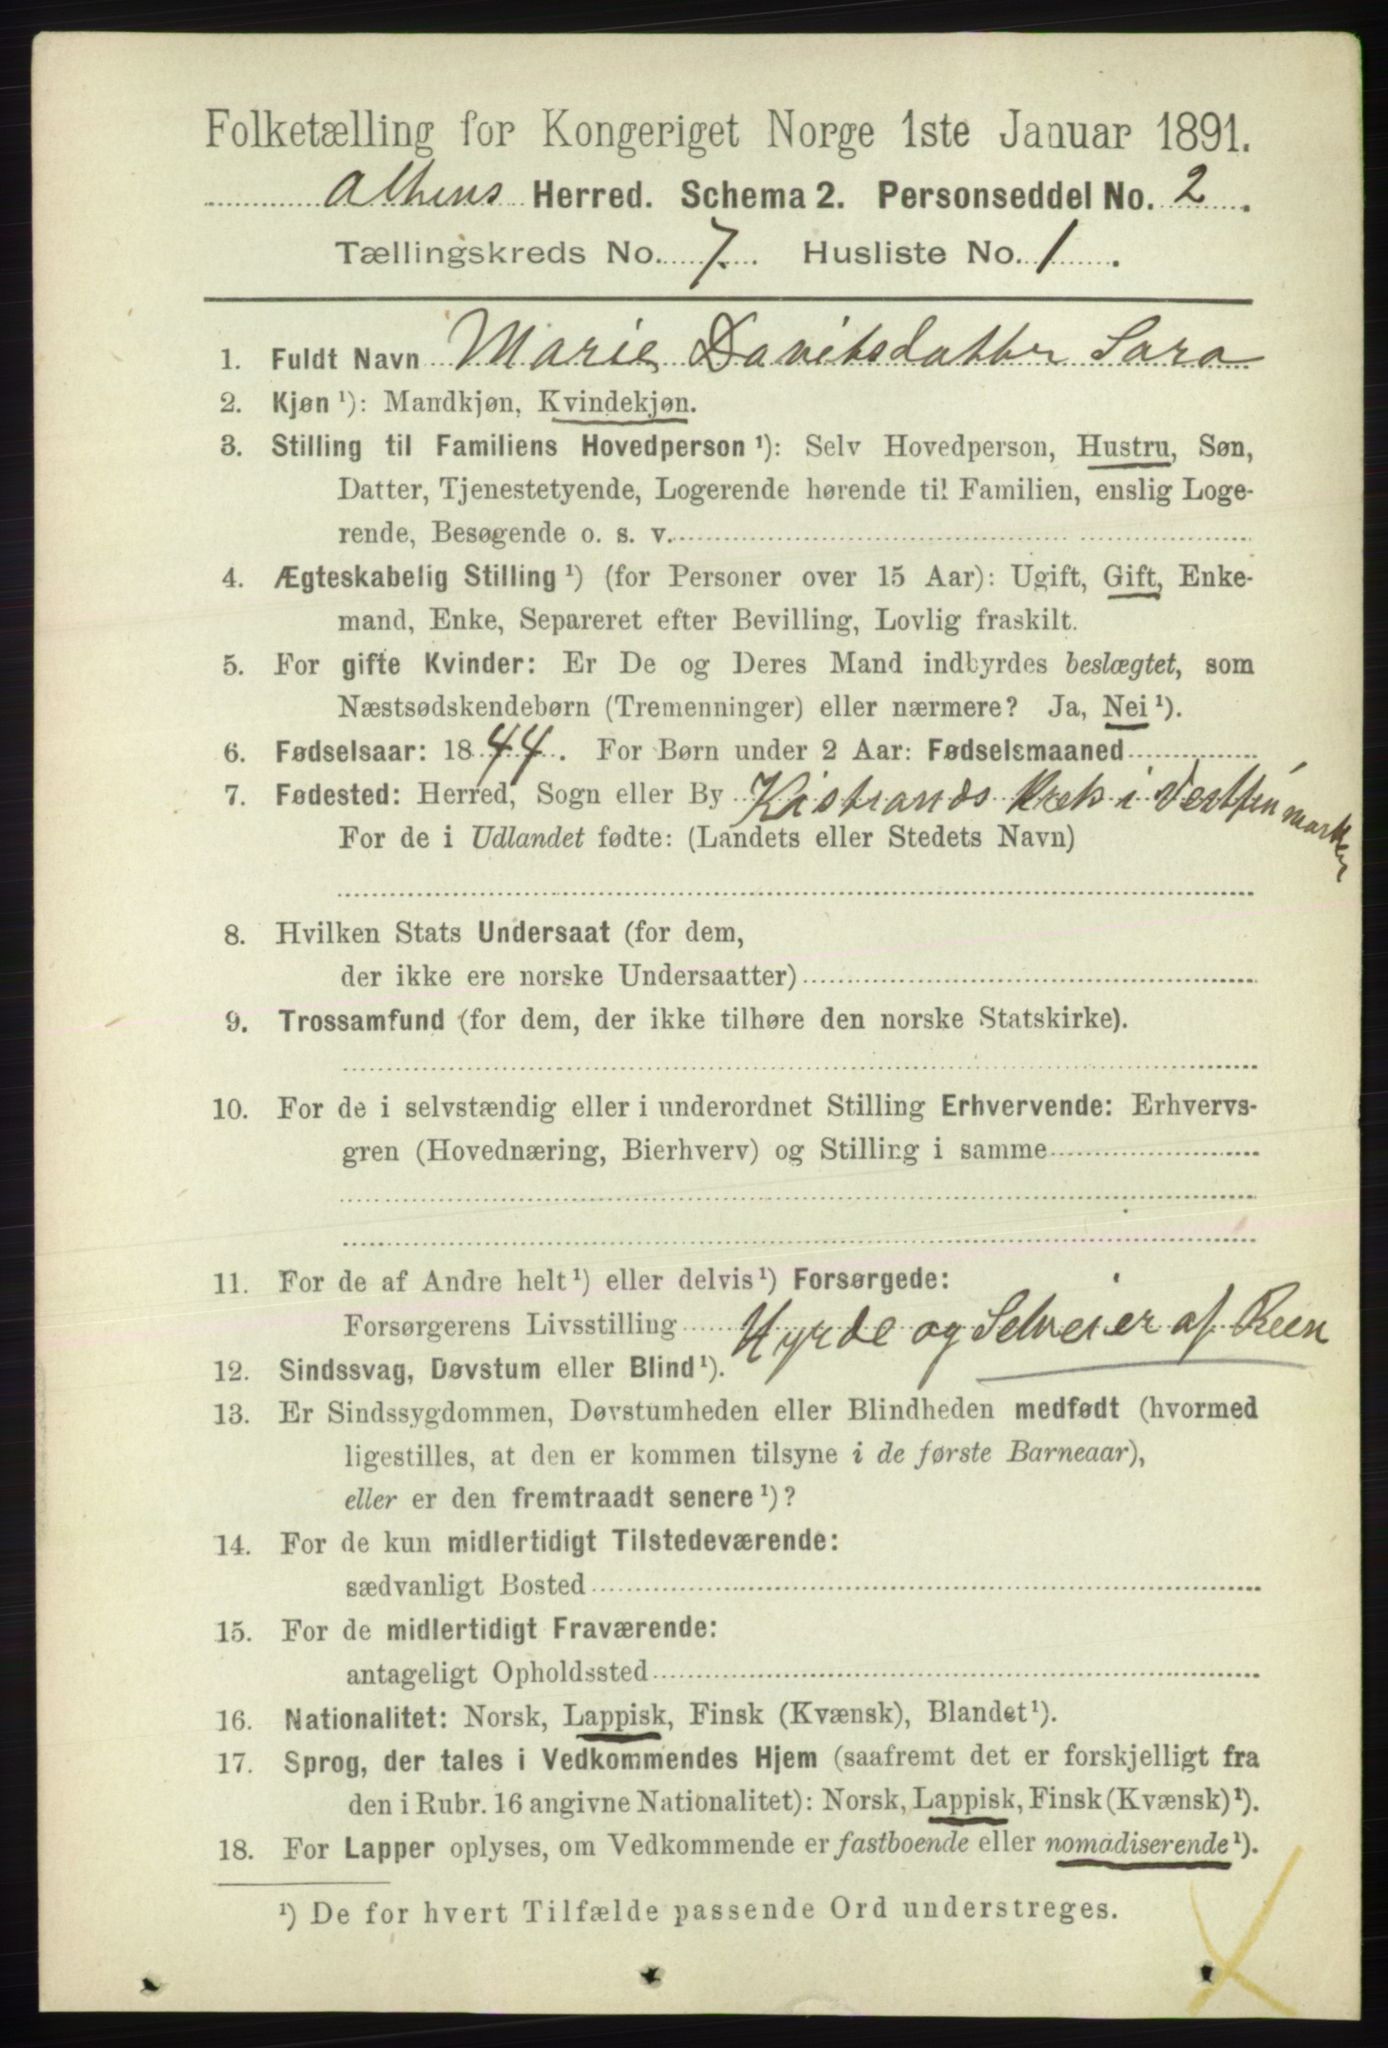 Folketælling for Kongeriget Norge 1ste Januar 1891.
Altens Herred. Schema 2. Personseddel No. 2.
Tællingskreds No. 7. Husliste No. 1.
1. Fuldt Navn Marie Davitsdatter Sara
2. Kjøn ¹): Mandkjøn, Kvindekjøn.
3. Stilling til Familiens Hovedperson ¹): Selv Hovedperson, Hustru, Søn,
Datter, Tjenestetyende, Logerende hørende til Familien, enslig Loge-
rende, Besøgende o. s. v.
4. Ægteskabelig Stilling ¹) (for Personer over 15 Aar): Ugift, Gift, Enke-
mand, Enke, Separeret efter Bevilling, Lovlig fraskilt.
5. For gifte Kvinder: Er De og Deres Mand indbyrdes beslægtet, som
Næstsødskendebørn (Tremenninger) eller nærmere? Ja, Nei ¹).
6. Fødselsaar: 1844. For Børn under 2 Aar: Fødselsmaaned
7. Fødested: Herred, Sogn eller By Kistrands i Vestfinmarken
For de i Udlandet fødte: (Landets eller Stedets Navn)
8. Hvilken Stats Undersaat (for dem,
der ikke ere norske Undersaatter)
9. Trossamfund (for dem, der ikke tilhøre den norske Statskirke).
10. For de i selvstændig eller i underordnet Stilling Erhvervende: Erhvervs-
gren (Hovednæring, Bierhverv) og Stilling i samme
11. For de af Andre helt ¹) eller delvis ¹) Forsørgede:
Forsørgerens Livsstilling Hyrde og Selveier af Reen
12. Sindssvag, Døvstum eller Blind ¹).
13. Er Sindssygdommen, Døvstumheden eller Blindheden medfødt (hvormed
ligestilles, at den er kommen tilsyne i de første Barneaar),
eller er den fremtraadt senere ¹)?
14. For de kun midlertidigt Tilstedeværende:
sædvanligt Bosted
15. For de midlertidigt Fraværende:
antageligt Opholdssted
16. Nationalitet: Norsk, Lappisk, Finsk (Kvænsk), Blandet ¹).
17. Sprog, der tales i Vedkommendes Hjem (saafremt det er forskjelligt fra
den i Rubr. 16 angivne Nationalitet): Norsk, Lappisk, Finsk (Kvænsk) ¹).
18. For Lapper oplyses, om Vedkommende er fastboende eller nomadiserende ¹).
¹) De for hvert Tilfælde passende Ord understreges.